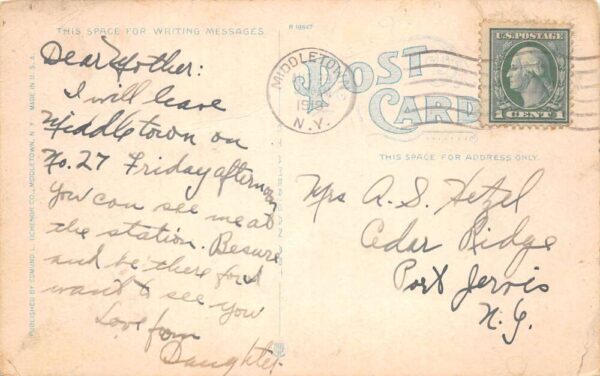 THIS SPACE FOR WRITING MESSAGES
R 19847
Dear Mother:
I will leave
Middletown on
No. 27 Friday afternoon
You can see me at
the station. Be sure
and be there for I
want to see you
Love from
Daughter.
PUBLISHED BY EDMUND L. EICHENGR CO., MIDDLETOWN, N. Y. MADE IN U. S. A.
MIDDLETOWN
N.Y.
POST
CARD
U.S. POSTAGE
1 CENT 1
THIS SPACE FOR ADDRESS ONLY.
Mrs A. S. Hetzel
Cedar Ridge
Port Jervis
N.Y.